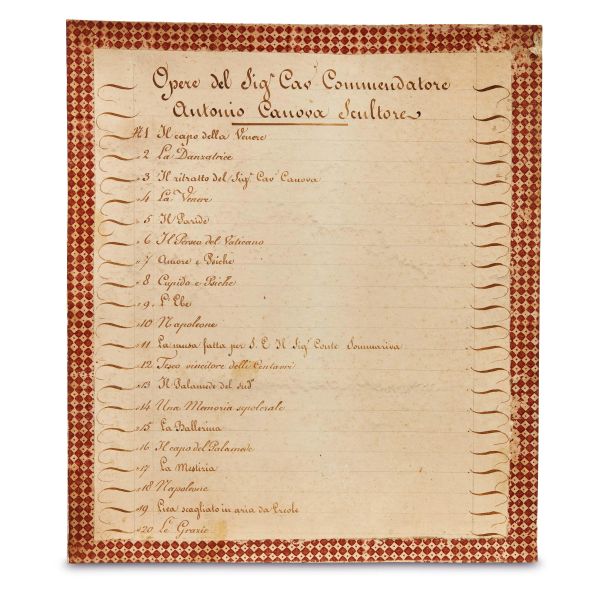 Opere del Sigr Cavr Commendatore
Antonio Canova Scultore
N.1 Il capo della Venere
2 La Danzatrice
3 Il ritratto del Sigr Cavr Canova
4 La Venere
5 Il Paride
6 Il Perseo del Vaticano
7 Amore e Psiche
8 Cupido e Psiche
9 L'Ebe
10 Napoleone
11 La musa fatta per S. E. Il Sigr Conte Sommariva
12 Teseo vincitore delli Centauri
13 Il Palamede del sudo
14 Una Memoria sepolcrale
15 La Ballerina
16 Il capo del Palamede
17 La Mestizia
18 Napoleone
19 Lica scagliato in aria da Ercole
20 Le Grazie